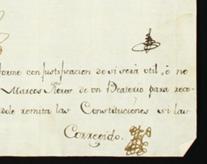 forme con justificacion de si será util, ó no
Marcos de un Beaterio para reco-
remita las Constituciones si las
Corregido.